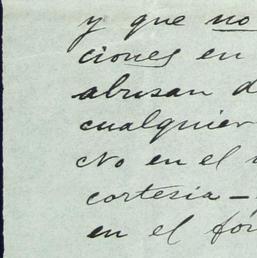 y que no
ciones en
abusan d
cualquier
No en el
cortesia —
en el for